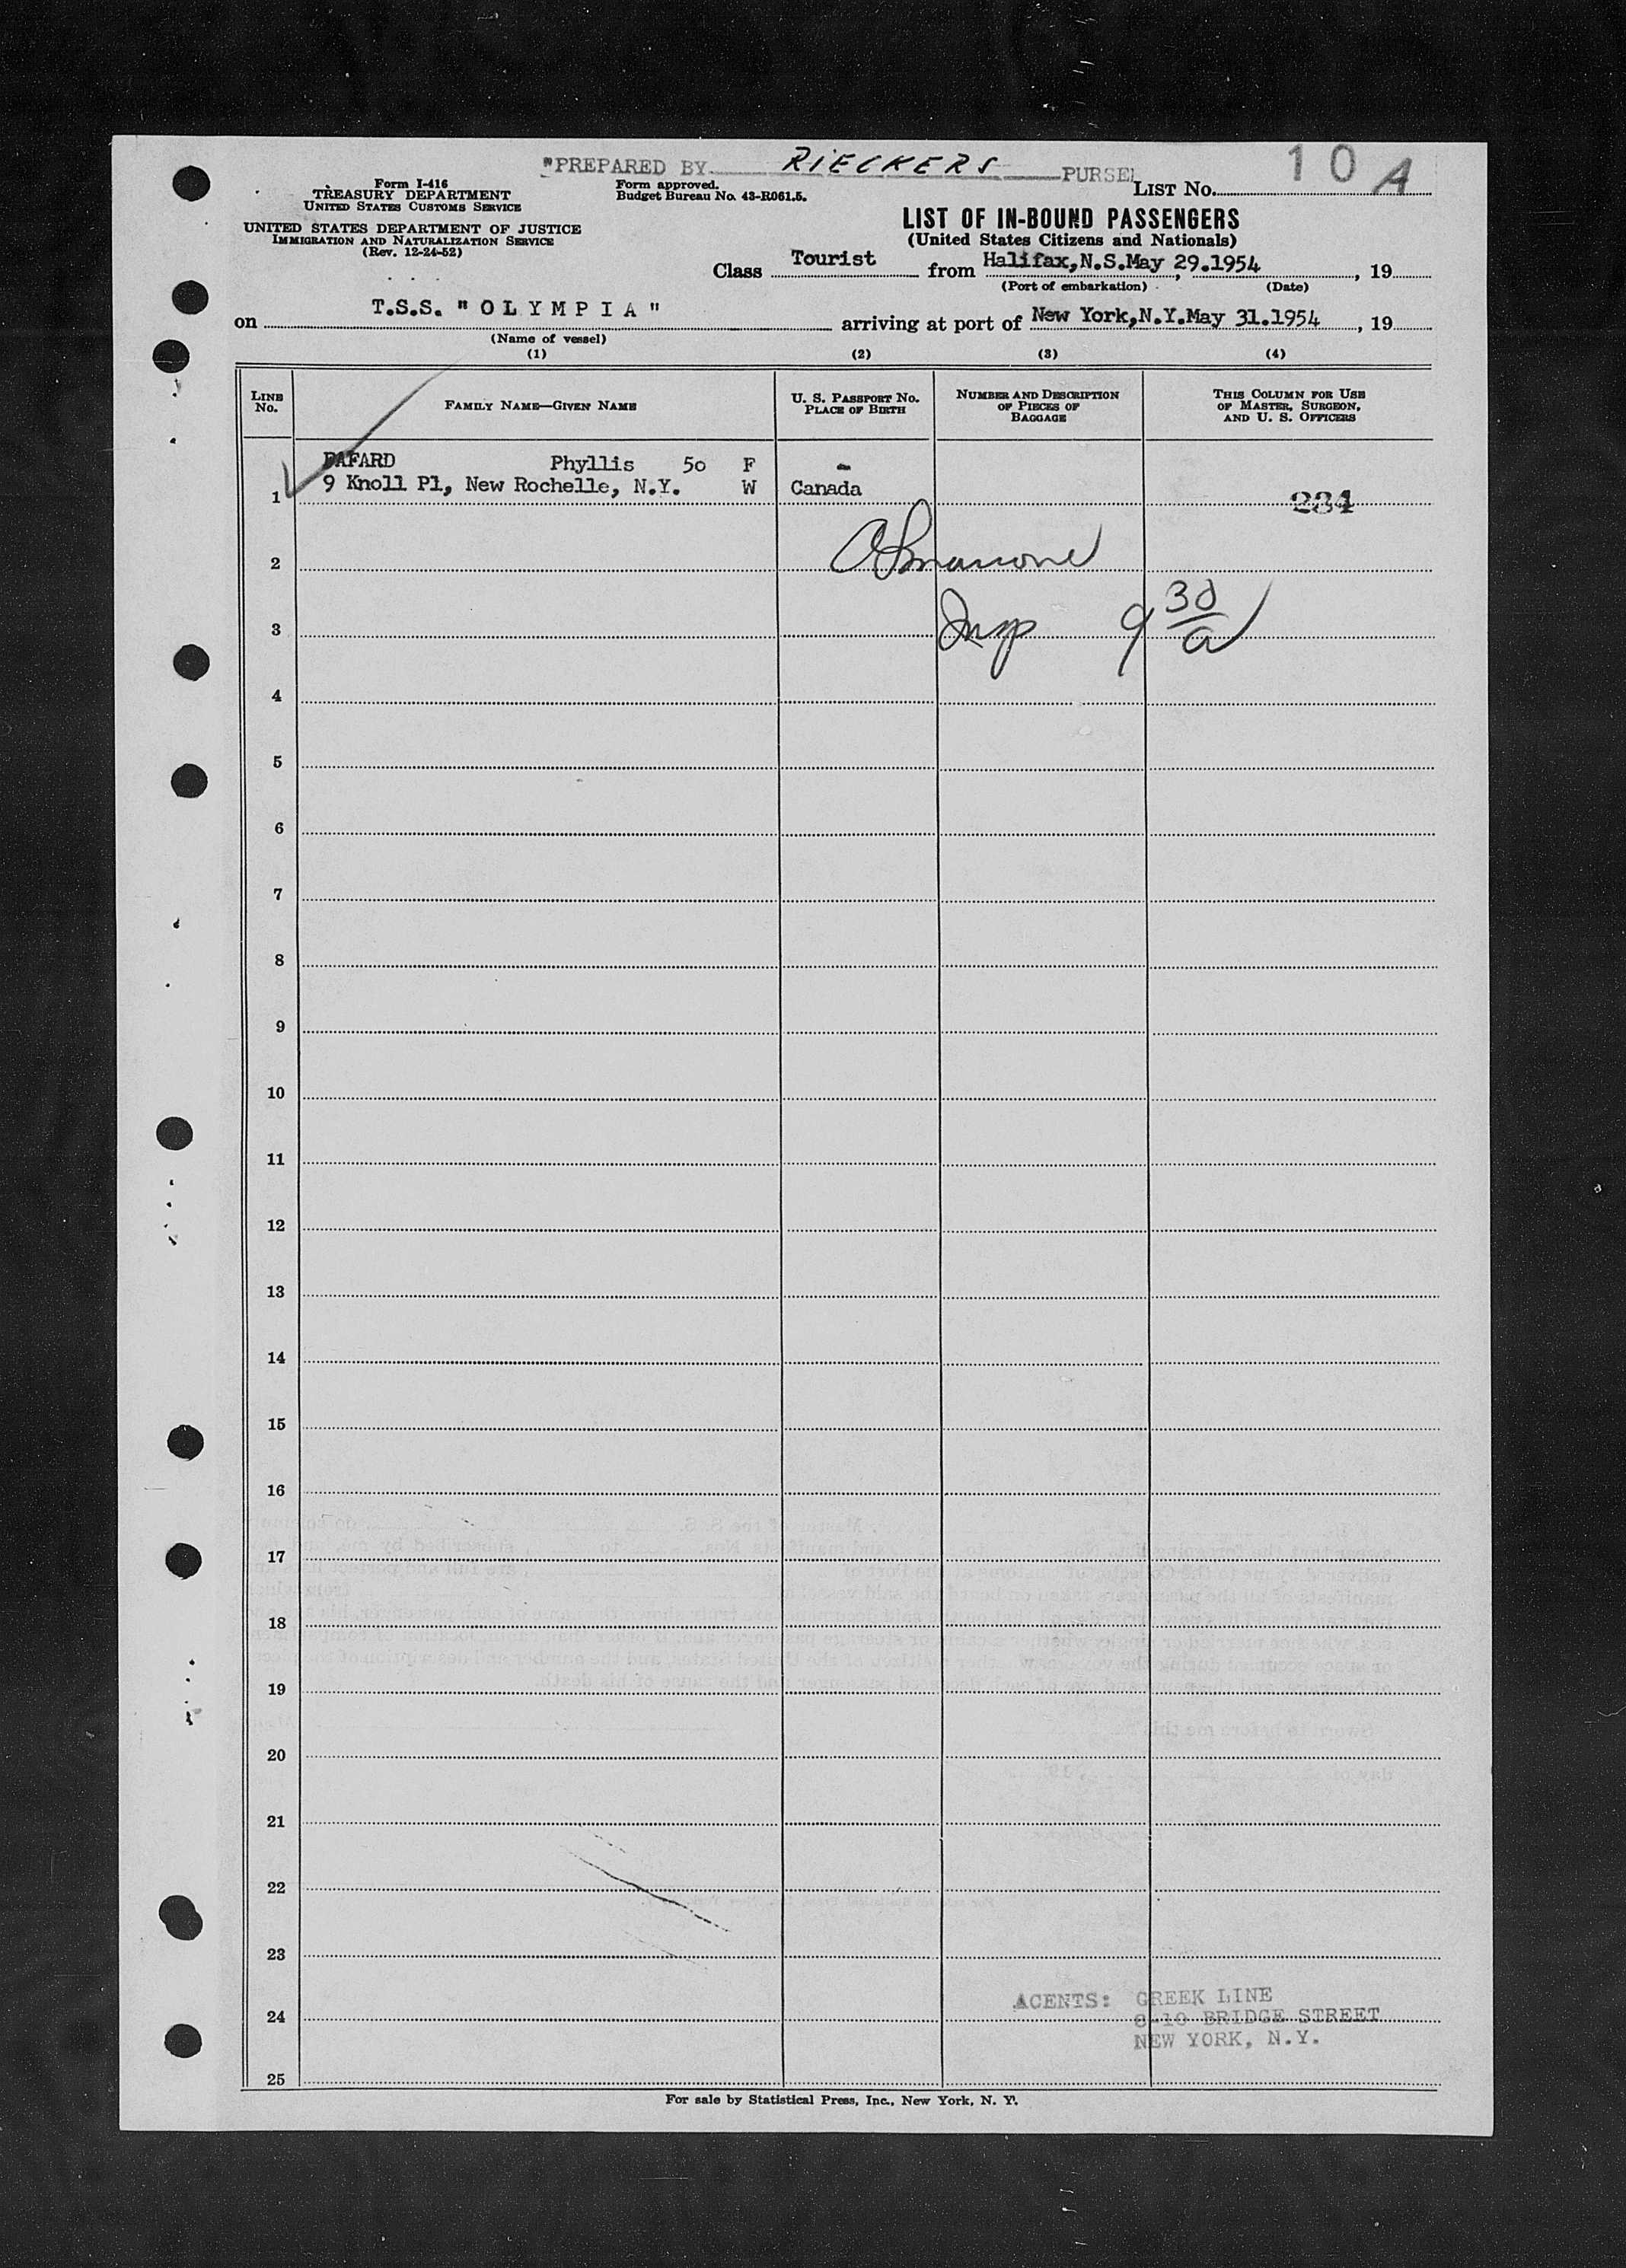 "PREPARED BY RIECKERS PURSER
10 A
LIST No.
Form I-416
TREASURY DEPARTMENT
UNITED STATES CUSTOMS SERVICE
Form approved.
Budget Bureau No. 43-R061.5.
UNITED STATES DEPARTMENT OF JUSTICE
IMMIGRATION AND NATURALIZATION SERVICE
(Rev. 12-24-52)
LIST OF IN-BOUND PASSENGERS
(United States Citizens and Nationals)
Class Tourist from Halifax,N.S.May 29.1954, 19
(Port of embarkation) (Date)
on T.S.S. "OLYMPIA" arriving at port of New York,N.Y.May 31.1954, 19
(Name of vessel)
(1) (2) (3) (4)
LINE No. FAMILY NAME—GIVEN NAME U. S. PASSPORT No. PLACE OF BIRTH NUMBER AND DESCRIPTION OF PIECES OF BAGGAGE THIS COLUMN FOR USE OF MASTER, SURGEON, AND U. S. OFFICERS
Phyllis 50 F -
1 9 Knoll Pl, New Rochelle, N.Y. W Canada 234
2
3 Insp 9 30/a
4
5
6
7
8
9
10
11
12
13
14
15
16
17
18
19
20
21
22
23
AGENTS: GREEK LINE
24 8-10 BRIDGE STREET
NEW YORK, N.Y.
25
For sale by Statistical Press, Inc., New York, N. Y.